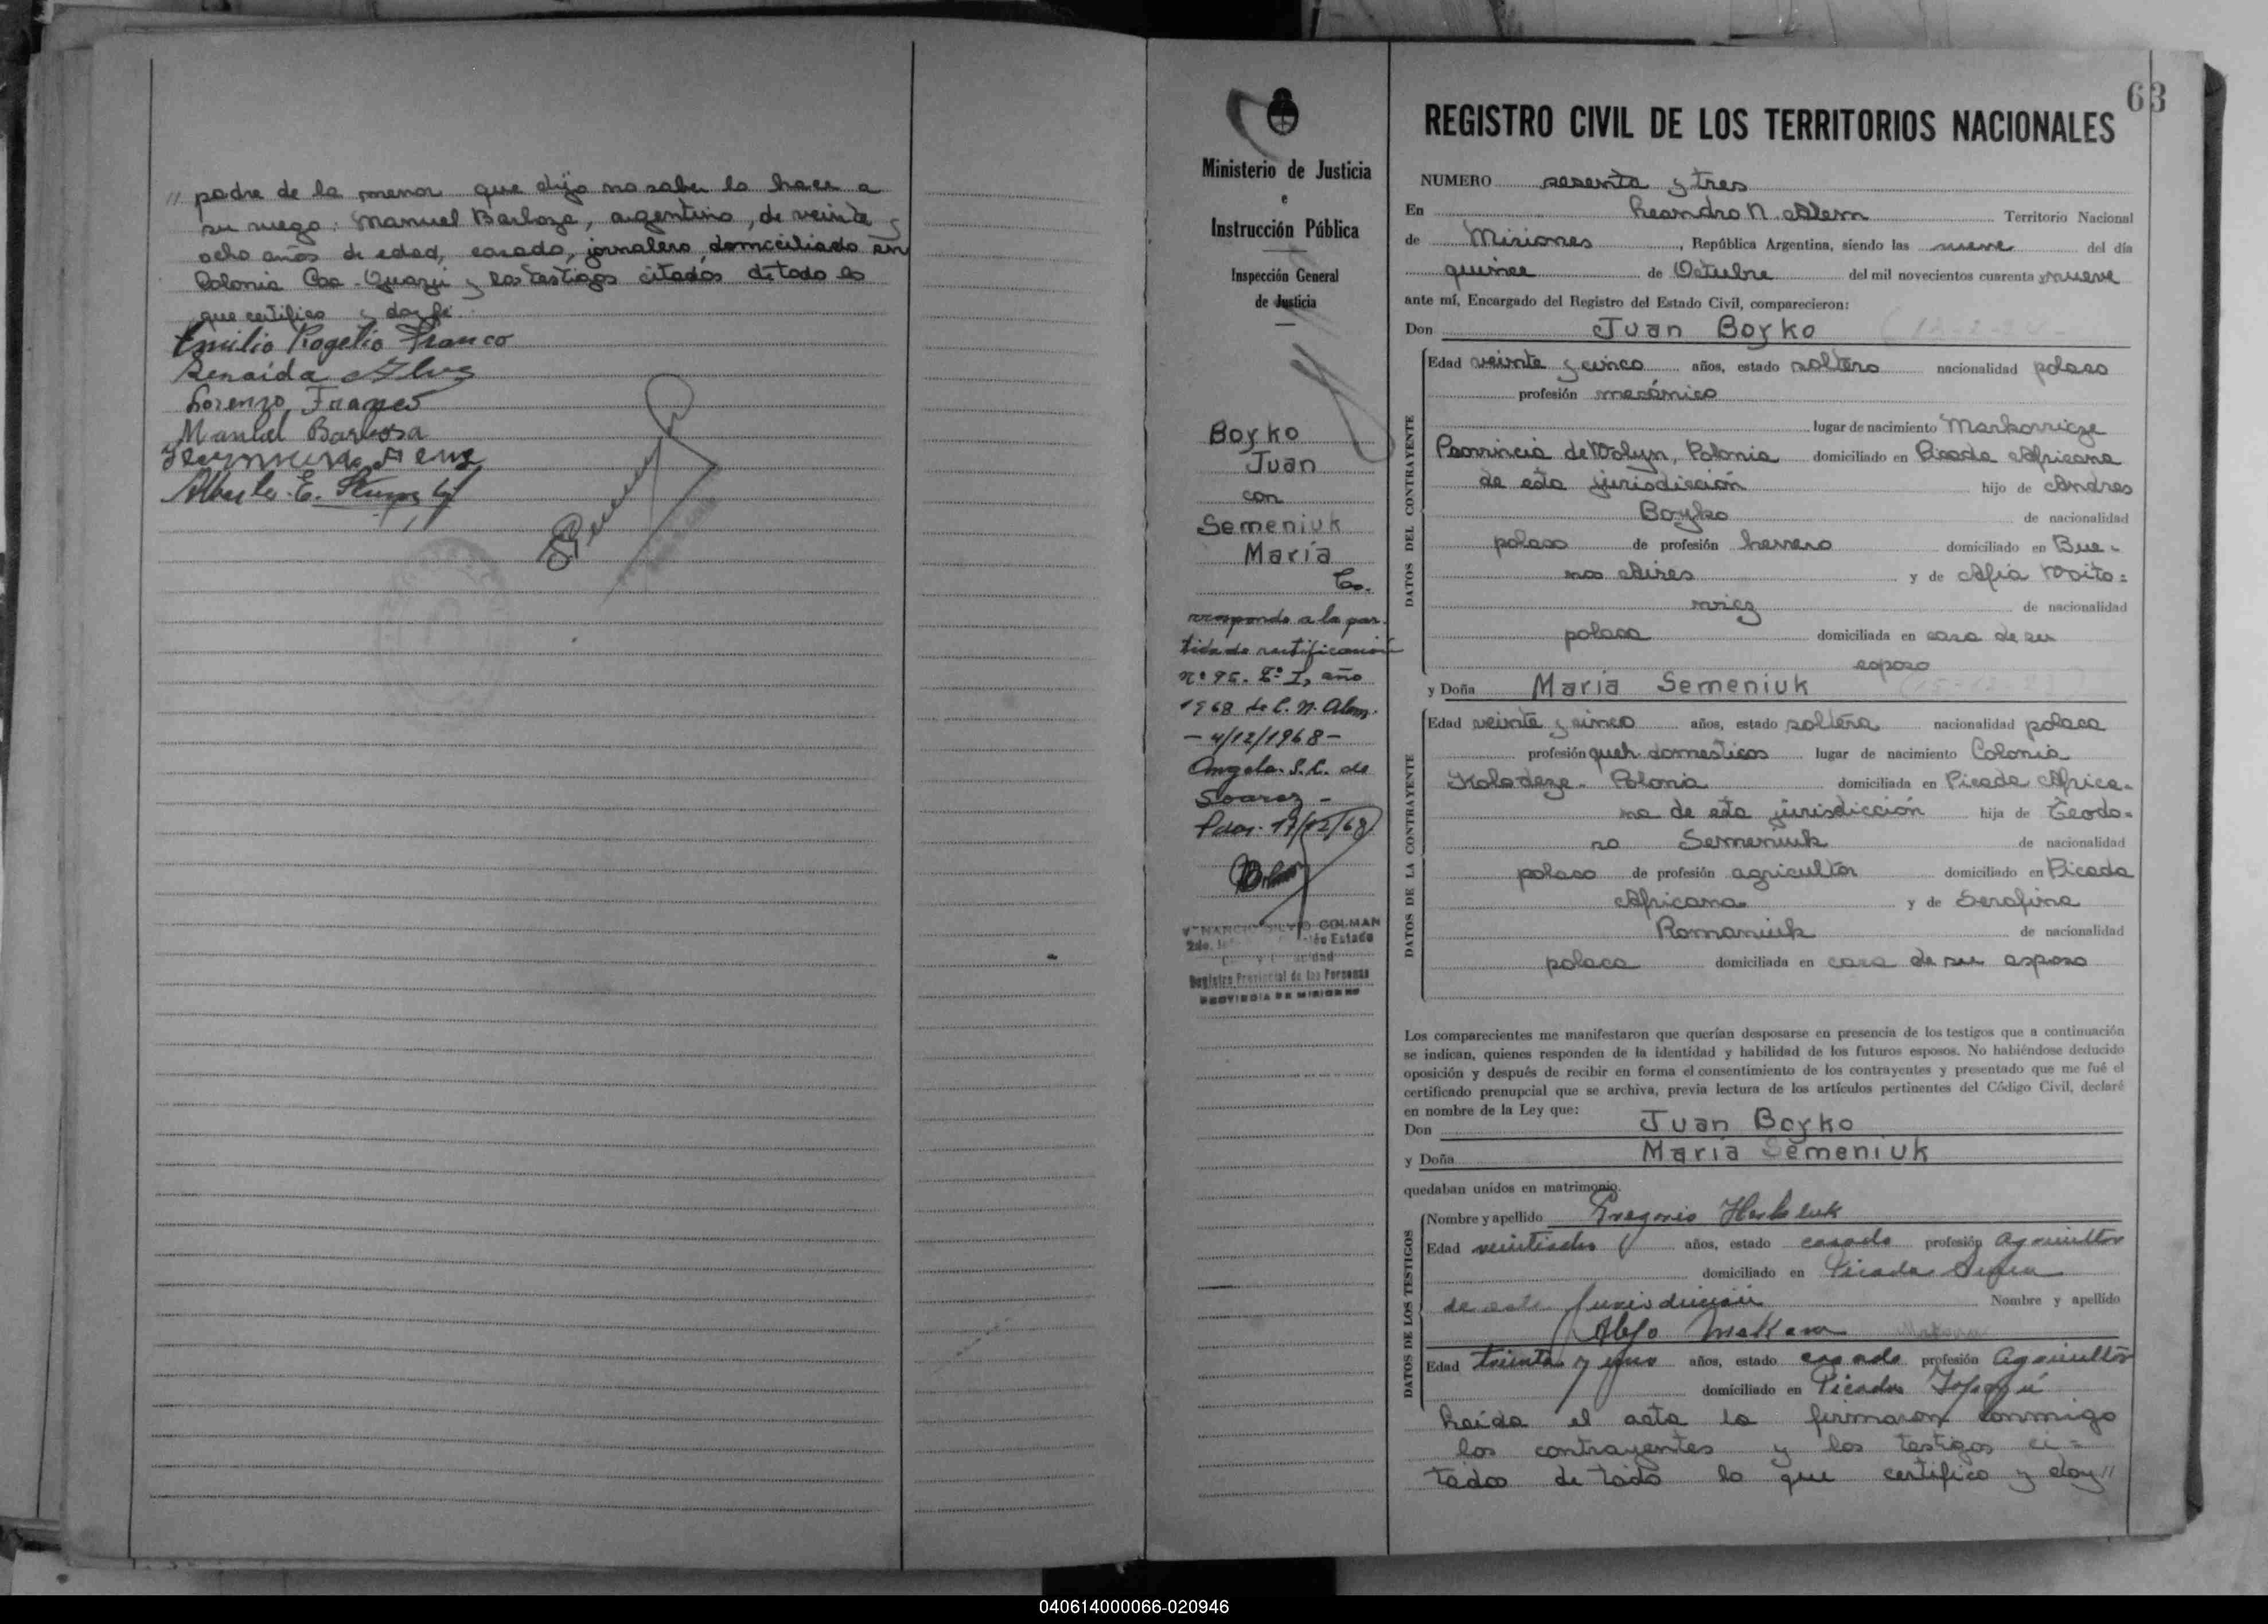 " padre de la menor que dijo no saber lo hace a
su ruego: Manuel Barboza, argentino, de veinte y
ocho años de edad, casado, jornalero, domiciliado en
Colonia Caa-Guazú y los testigos citados de todo lo
que certifico y doy fe.
Emilio Rogelio Franco
Zenaida
Lorenzo Franco
Manuel Barbosa
Alberto E.
63
Ministerio de Justicia
e
Instrucción Pública
Inspección General
de Justicia
Boyko
Juan
con
Semeniuk
María
Co-
rresponde a la par-
tida de rectificación
nº 95. Tº I, año
1968 de L. N. Alem.
- 4/12/1968 -
Angela S. L. de
Soarez -
17/12/68
GOLMAN
2do.
Estado
Registro Provincial de las Personas
PROVINCIA DE MISIONES
REGISTRO CIVIL DE LOS TERRITORIOS NACIONALES
NUMERO sesenta y tres
En Leandro N. Alem Territorio Nacional
de Misiones, República Argentina, siendo las nueve del día
quince de Octubre del mil novecientos cuarenta y nueve
ante mí, Encargado del Registro del Estado Civil, comparecieron:
Don Juan Boyko
DATOS DEL CONTRAYENTE
Edad veinte y cinco años, estado soltero nacionalidad polaco
profesión mecánico
lugar de nacimiento Markowicze
Provincia de Wolyn, Polonia domiciliado en Picada Africana
de esta jurisdicción hijo de Andres
Boyko de nacionalidad
polaco de profesión herrero domiciliado en Bue-
nos Aires y de Afia Woito=
wicz de nacionalidad
polaca domiciliada en casa de su
esposo
y Doña María Semeniuk
DATOS DE LA CONTRAYENTE
Edad veinte y cinco años, estado soltera nacionalidad polaca
profesión queh. domesticos lugar de nacimiento Colonia
Kolodeze - Polonia domiciliada en Picada Africa-
na de esta jurisdicción hija de Teodo=
ro Semeniuk de nacionalidad
polaco de profesión agricultor domiciliado en Picada
Africana y de Serafina
Romaniuk de nacionalidad
polaca domiciliada en casa de su esposo
Los comparecientes me manifestaron que querían desposarse en presencia de los testigos que a continuación
se indican, quienes responden de la identidad y habilidad de los futuros esposos. No habiéndose deducido
oposición y después de recibir en forma el consentimiento de los contrayentes y presentado que me fué el
certificado prenupcial que se archiva, previa lectura de los artículos pertinentes del Código Civil, declaré
en nombre de la Ley que:
Don Juan Boyko
y Doña María Semeniuk
quedaban unidos en matrimonio.
DATOS DE LOS TESTIGOS
Nombre y apellido Gregorio
Edad veintiocho años, estado casado profesión Agricultor
domiciliado en Picada
de esta Jurisdicción Nombre y apellido
Alejo
Edad treinta y uno años, estado casado profesión Agricultor
domiciliado en Picada
Leída el acta la firmaron conmigo
los contrayentes y los testigos ci=
tados de todo lo que certifico y doy "
040614000066-020946